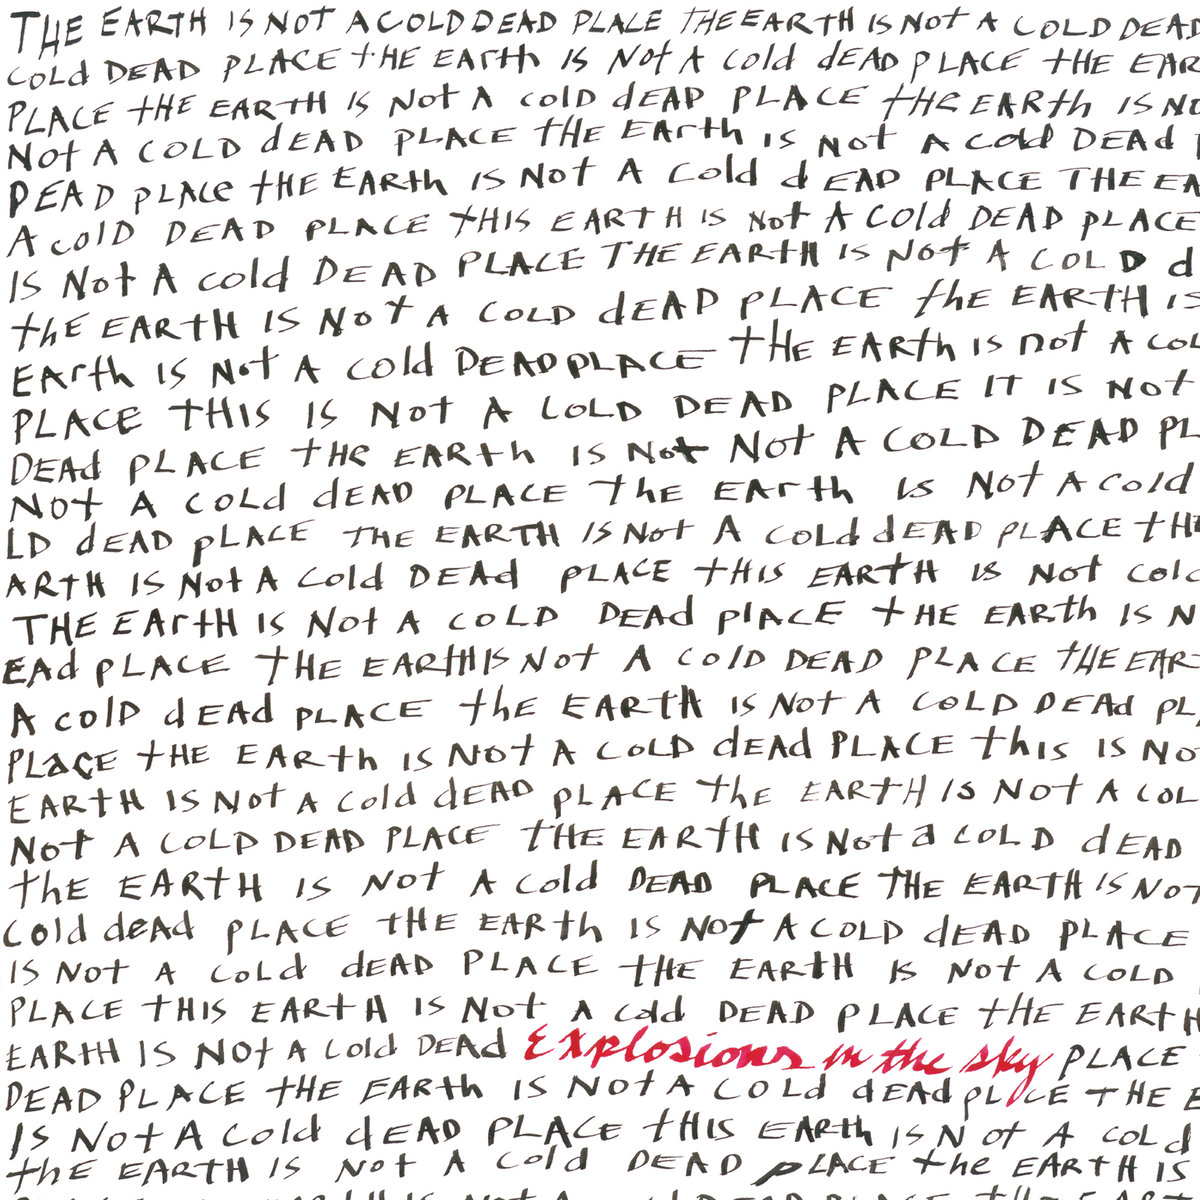 THE EARTH IS NOT A COLD DEAD PLACE THE EARTH IS NOT A COLD DEAD
COLd DEAD PLACE tHE EARth IS Not A Cold dEAD PLACE tHE EAR
PLACE tHE EARTH IS Not A colD dEAD PLACE tHe EARth IS NO
Not A COLD dEAD PLACE tHE EArth IS Not A cold DEAd
DEAD pLAce tHE EARth IS Not A Cold d EAD PLACE THE EA
A colD DEAD PLACE tHIS EARTH IS Not A COld DEAD pLACE
IS Not A cold DEAD PLACE THE EARtH IS Not A COLD d
thE EARtH IS NoT A COLD dEAD pLACE the EARtH IS
EArth IS Not A cold DEAD pLACE tHE EARth IS not A COL
PLACE tHIS IS Not A COLD DEAD PLACE IT IS Not
DEAd pLACE tHe EARth IS Not Not A COLD DEAD PL
Not A COLd dEAD PLACE the EArth IS Not A Cold
LD dEAD pLACE THE EARTH IS Not A COLd dEAD pLACE tHE
ARtH IS Not A Cold DEAd pLACE tHIS EARtH IS Not Cold
THE EArtH IS Not A COLD DEAd plACE tHE EARth IS N
EAd pLACE tHE EARtH IS Not A ColD DEAD PLACE tHE EAR
A colD dEAd pLACE the EARtH IS Not A COLD DEAd pL
PLacE tHE EARth IS Not A COLD dEAd PLACE this IS No
EARtH IS Not A Cold dEAD pLACE the EARtH IS Not A COL
Not A COLD DEAD PLACE tHE EARtH IS Not a COLD dEAD
thE EARtH IS Not A Cold DEAD PLACE THE EARTH IS NoT
Cold dEAd pLACE tHE EARth IS Not A COLD dEAD PLACE
IS Not A CoLd dEAD PLACE tHE EARtH IS Not A COLD
PLACE tHIS EARtH IS Not A Cold DEAD pLACE tHE EARtH
EARtH IS NOt A Cold DEAD Explosions in the sky PLACE
DEAD PLACE tHE EARth IS Not A COLd dEAd pLACE tHE E
IS Not A Cold dEAD PLACE tHIS EARth IS N ot A COLd
thE EARtH IS Not A Cold DEAD pLACE the EARtH IS